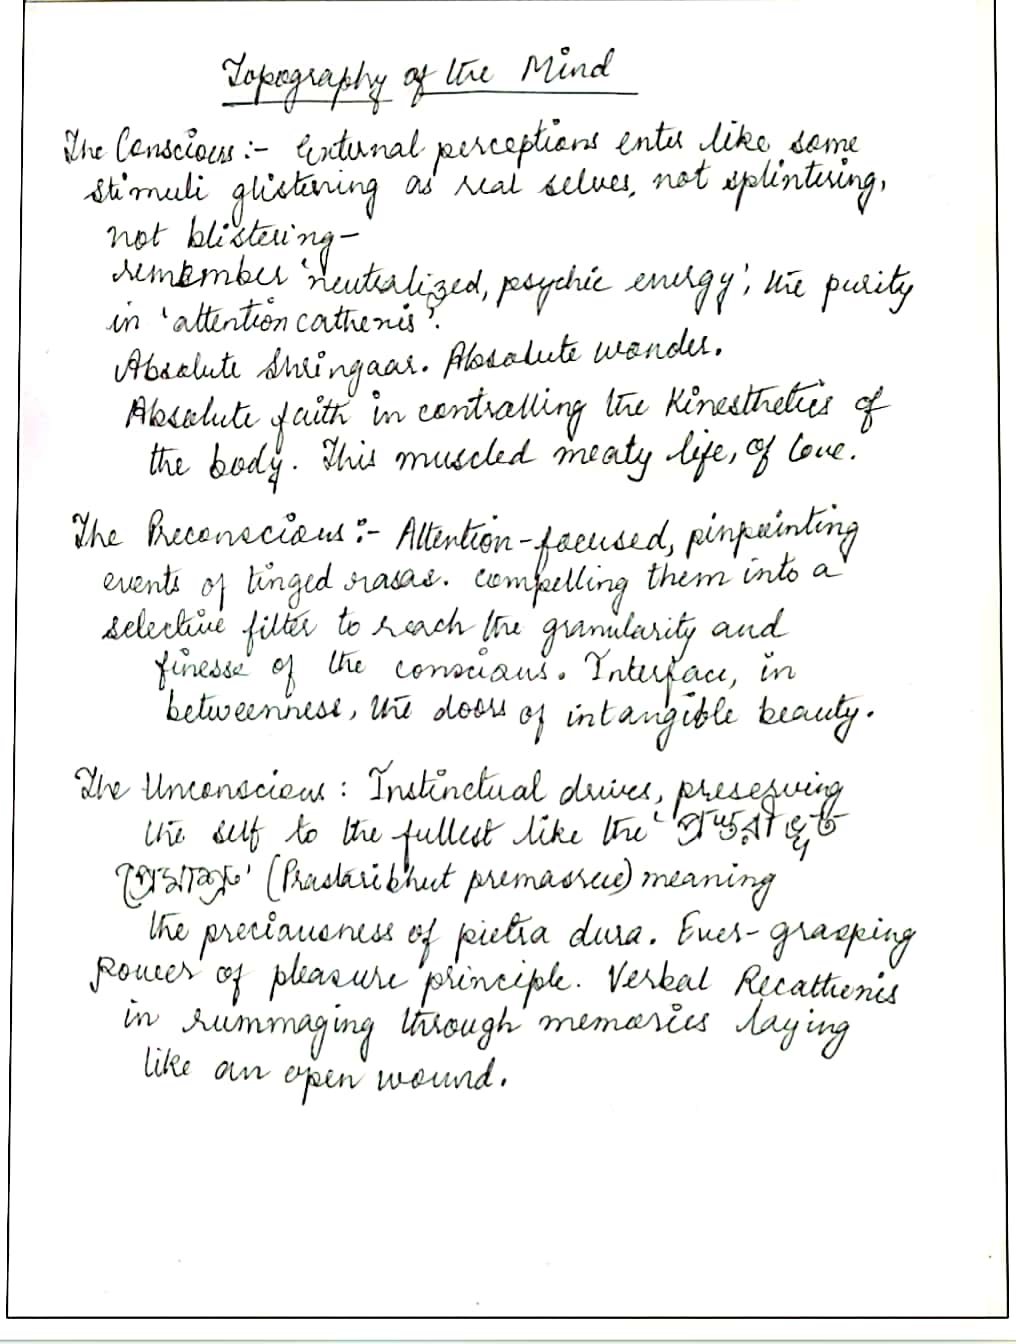 Topography of the Mind
The Conscious :- External perceptions enter like some
stimuli glistening as real selves, not splintering,
not blistering-
remember 'neutralized, psychic energy', the purity
in 'attention cathexis'.
Absolute Shringaar. Absolute wonder.
Absolute faith in controlling the Kinesthetics of
the body. This muscled meaty life, of love.
The Preconscious :- Attention-focused, pinpointing
events of tinged rasas. Compelling them into a
selective filter to reach the granularity and
finesse of the conscious. Interface, in
betweenness, the doors of intangible beauty.
The Unconscious : Instinctual drives, preserving
the self to the fullest like the 'প্রস্তরীভূত
প্রেমাশ্রু' (Prastaribhut premasrue) meaning
the preciousness of pietra dura. Ever-grasping
Power of pleasure principle. Verbal Recathexis
in rummaging through memories laying
like an open wound.